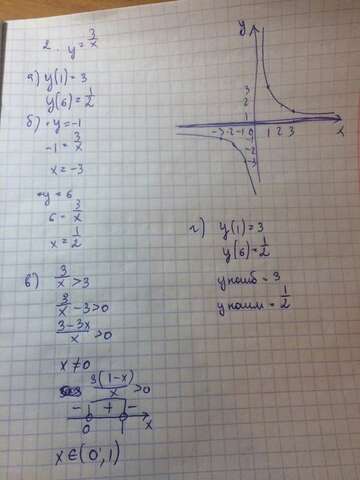 2. y = 3/x
а) y(1) = 3
y(6) = 1/2
б) • y = -1
-1 = 3/x
x = -3
• y = 6
6 = 3/x
x = 1/2
в) 3/x > 3
3/x - 3 > 0
(3 - 3x)/x > 0
x ≠ 0
3(1-x)/x > 0
- + -
0 1 x
x ∈ (0, 1)
y
3
2
1
-3 -2 -1 0 1 2 3 x
-2
-3
г) y(1) = 3
y(6) = 1/2
y наиб = 3
y наим = 1/2